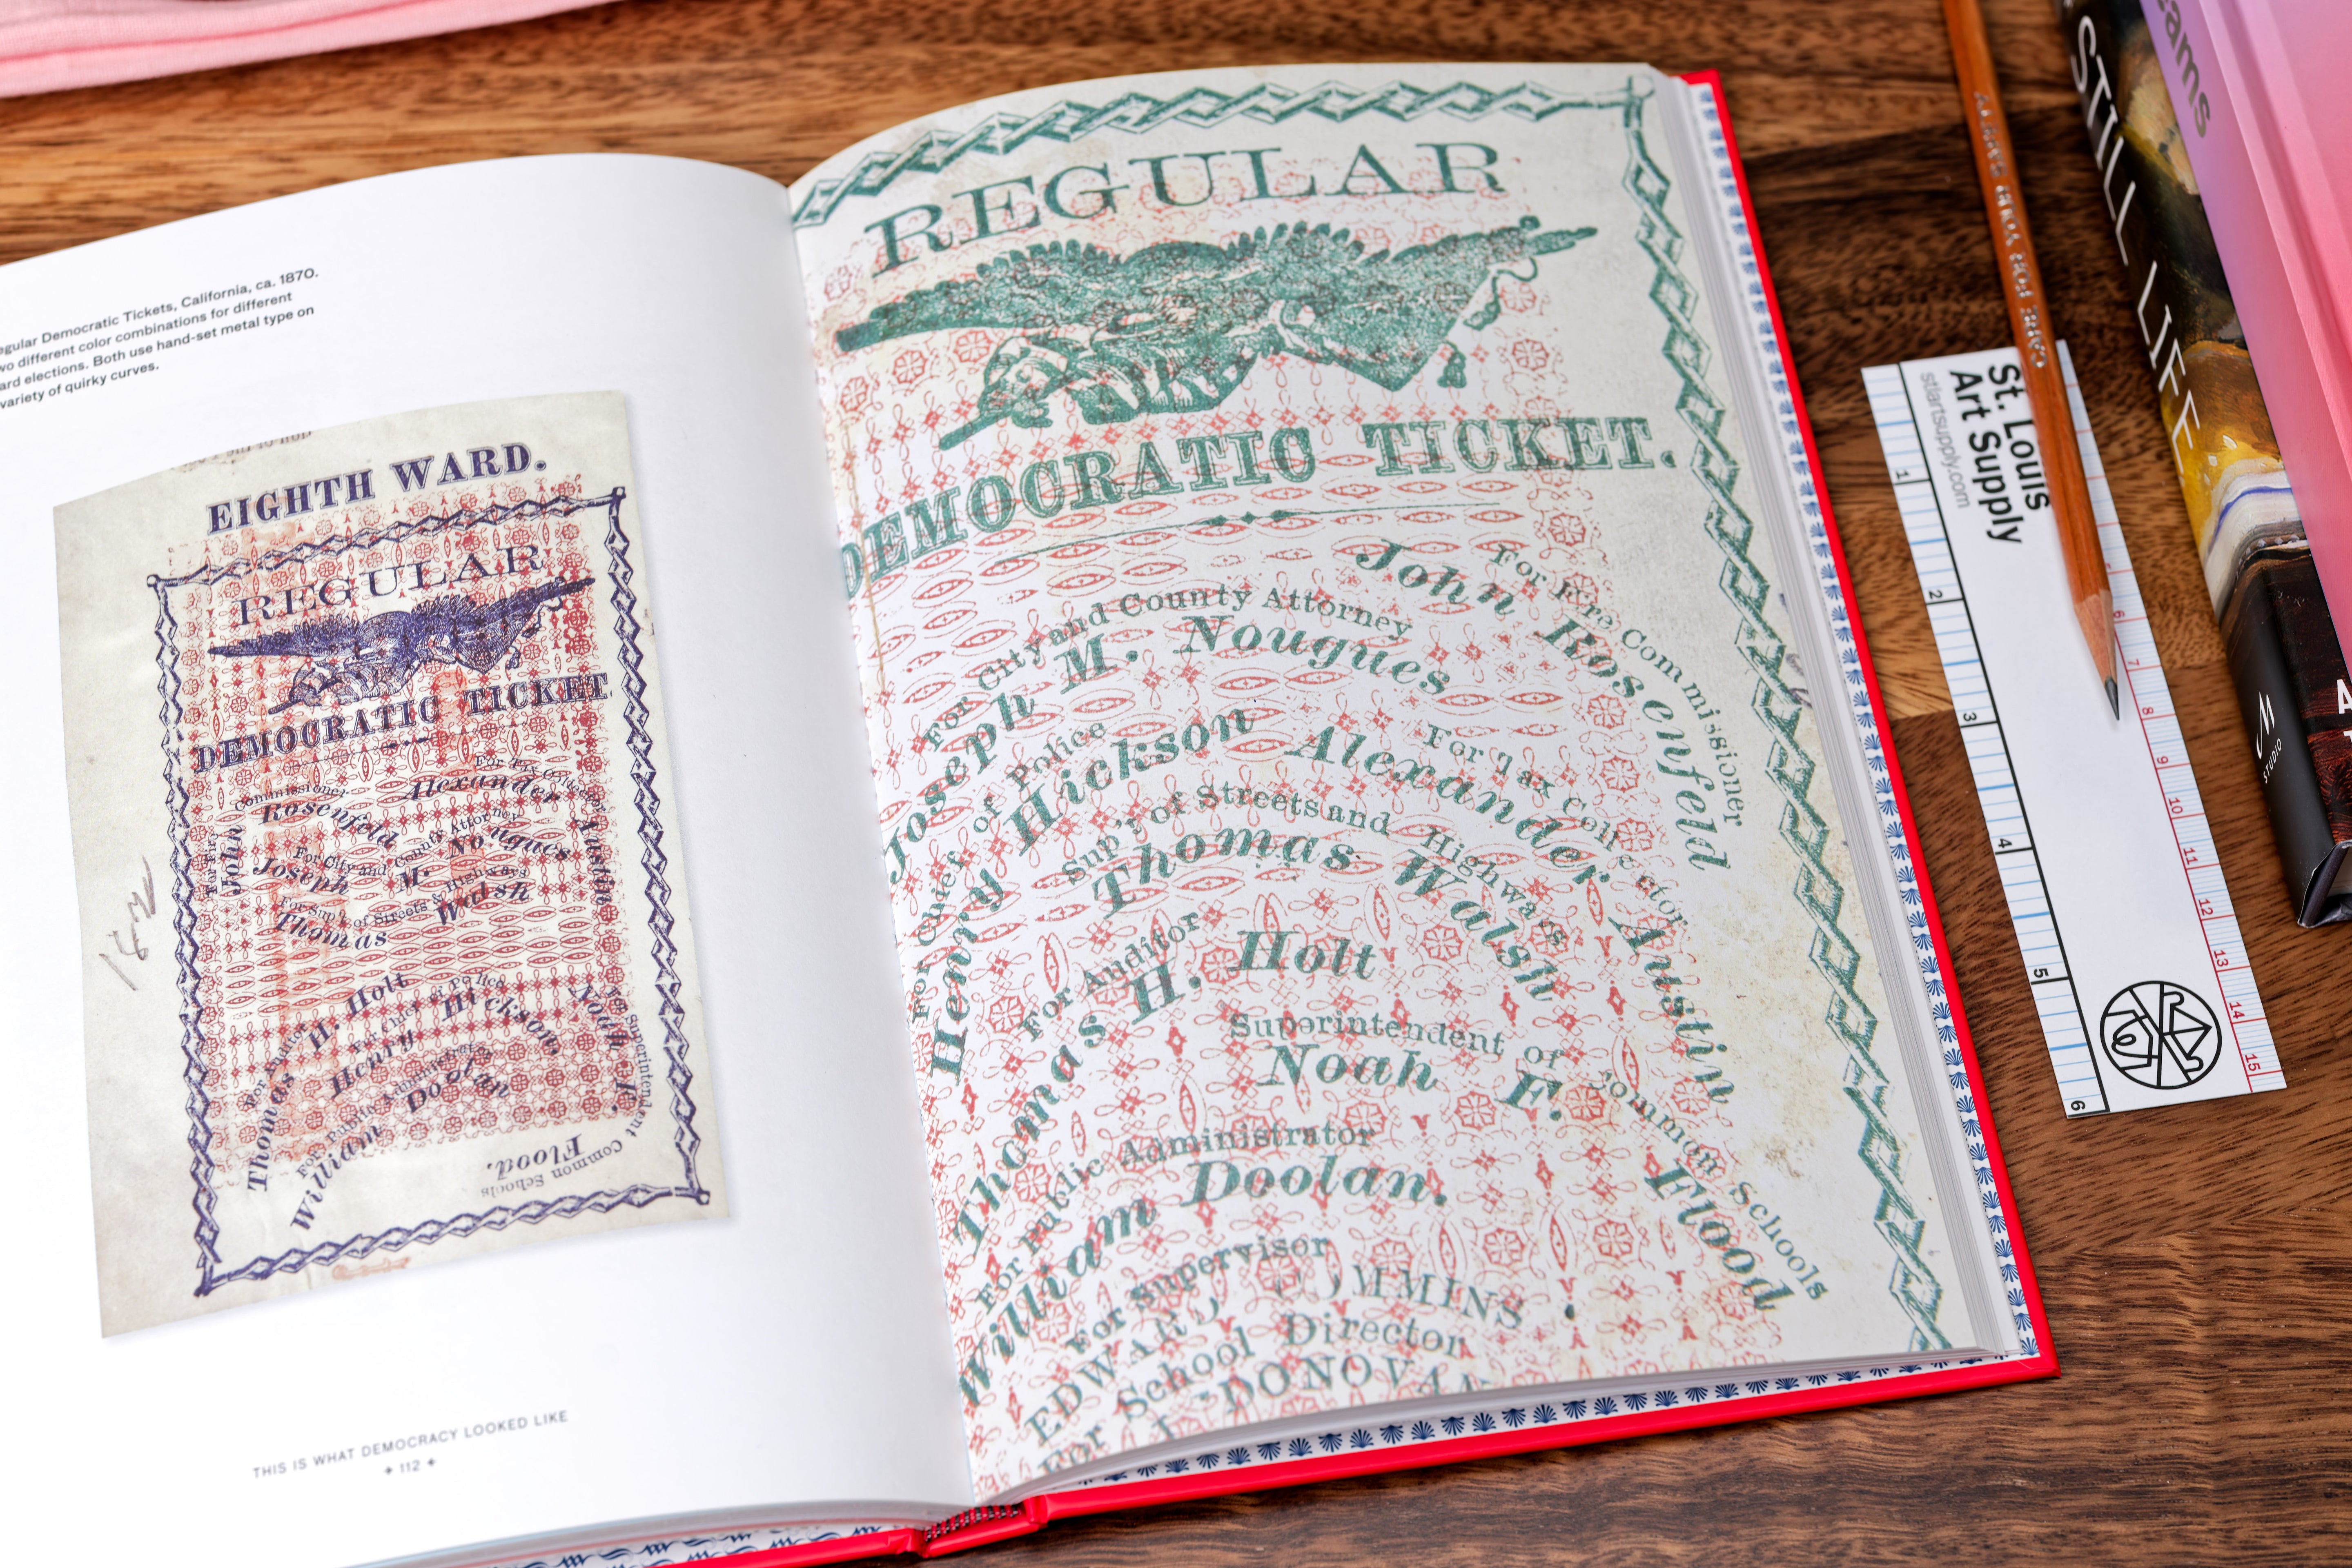 egular Democratic Tickets, California, ca. 1870.
wo different color combinations for different
ard elections. Both use hand-set metal type on
variety of quirky curves.
EIGHTH WARD.
REGULAR
DEMOCRATIC TICKET
For Fire Commissioner
John Rosenfeld
For Tax Collector
Alexander Austin
For City and County Attorney
Joseph M. Nougues
For Sup't of Streets & Highways
Thomas Walsh
For Auditor
Thomas H. Holt
For Chief of Police
Henry Hickson
For Public Administrator
William Doolan
For Superintendent Common Schools
Noah F. Flood.
182
THIS IS WHAT DEMOCRACY LOOKED LIKE
112
REGULAR
DEMOCRATIC TICKET.
For Fire Commissioner
John Rosenfeld
For City and County Attorney
Joseph M. Nougues
For Tax Collector
Alexander Austin
For Chief of Police
Henry Hickson
Sup't of Streets and Highways
Thomas Walsh
For Auditor
Thomas H. Holt
Superintendent of Common Schools
Noah F. Flood
For Public Administrator
William Doolan.
For Supervisor
EDWARD MMINS
For School Director
DONOVA
For
St. Louis
Art Supply
stlartsupply.com
1 2 3 4 5 6
6 7 8 9 10 11 12 13 14 15
STILL LIFE
eams
M
STUDIO